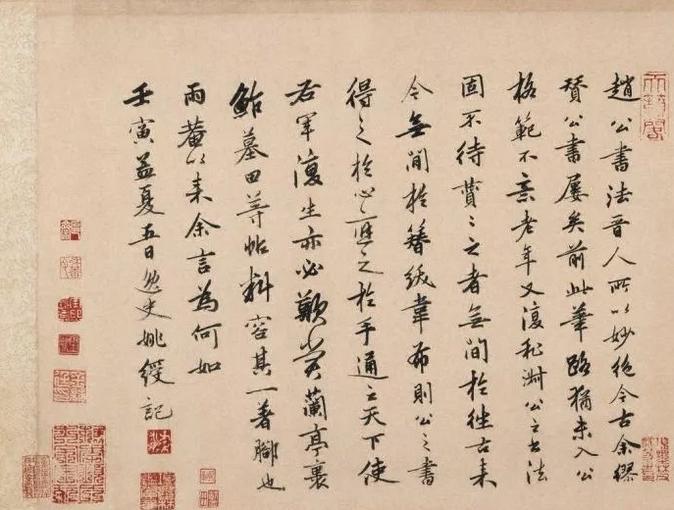 趙公書法晉人所以妙絕今古余繆
贊公書屢矣前此華路猶未入公
格範不意老年又復私淑公之书法
固不待贊之者無間於往古来
今無間於簪紱韋布則公之書
得之於心應之於手通之天下使
右軍復生亦必歎賞蘭亭裏
鮚墓田等帖料容其一著腳也
雨菴以来余言為何如
壬寅孟夏五日逸史姚綬記